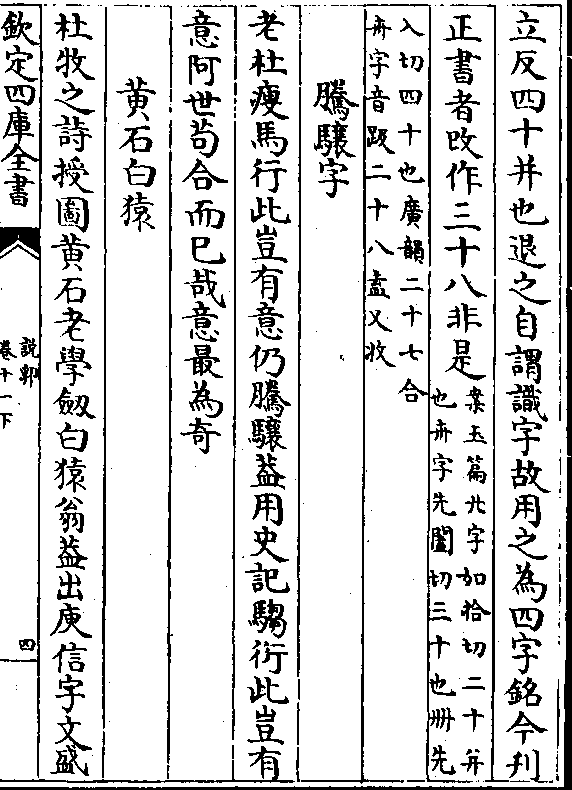 立反四十并也退之自謂識字故用之為四字銘今刋
正書者改作三十八非是
案玉篇廿字如拾切二十并
也卅字先闔切三十也卌先
入切四十也廣韻二十七合
卅字音趿二十八盍又收
騰驤字
老杜瘦馬行此豈有意仍騰驤葢用史記騶衍此豈有
意阿世茍合而已哉意最為奇
黄石白猿
杜牧之詩授圖黄石老學劔白猿翁葢出庾信宇文盛
欽定四庫全書
說郛
卷十一下
四